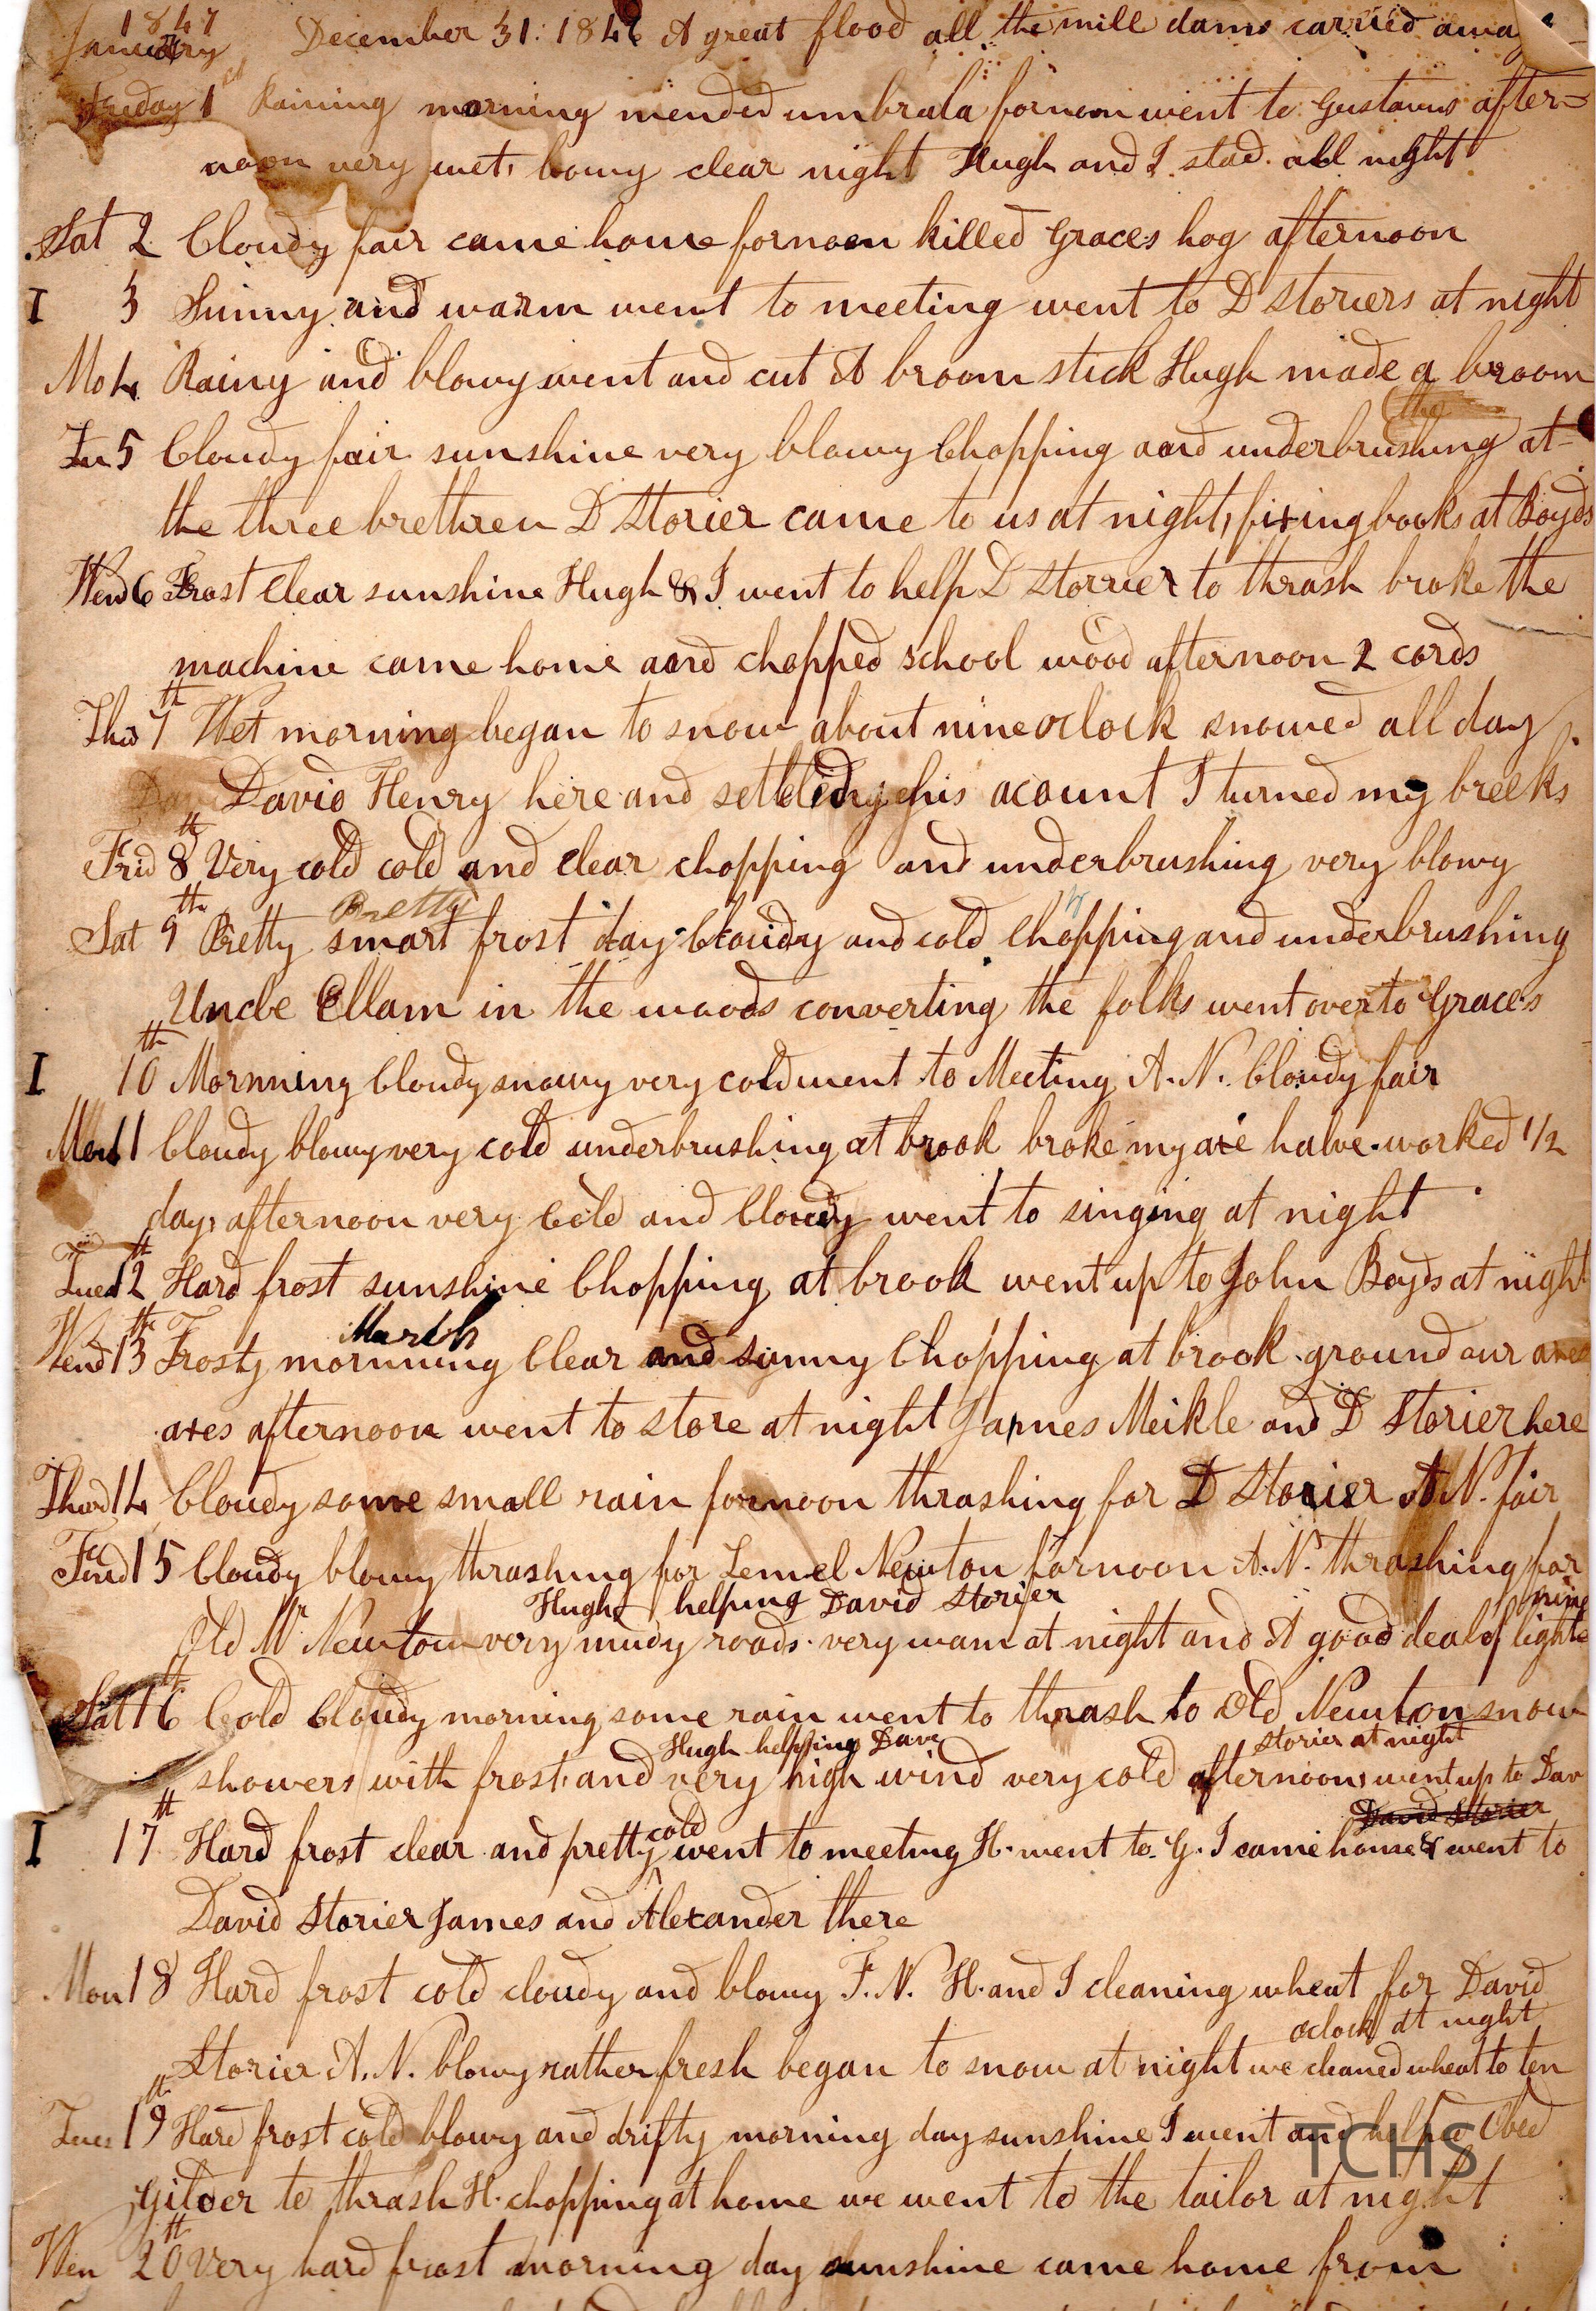 1847
January December 31: 1846 A great flood all the mill dams carried away
Friday 1st Raining morning mended umbrala fornoon went to Gustavus after=
noon very wet, bowy clear night Hugh and I stad all night
Sat 2 Cloudy fair came home fornoon killed Graces hog afternoon
I 3 Sunny and warm went to meeting went to D Storiers at night
Mo 4 Rainy and blowy went and cut A broom stick Hugh made a broom
the
Tu 5 Cloudy fair sunshine very blowy Chopping aard underbrushing at
the three brethren D Storier came to us at night, fixing books at Boyds
Wend 6 Frost Clear sunshine Hugh & I went to help D Storrier to thrash broke the
machine came home aard chopped school wood afternoon 2 cords
Thu 7th Wet morning began to snow about nine oclock snowed all day
David Henry here and settled his acount I turned my breeks
Frid 8th Very cold cold and clear chopping and underbrushing very blowy
Pretty
Sat 9th Pretty smart frost day Cloudy and cold Chopping and underbrushing
Uncle Ellam in the woods converting the folks went over to Graces
I 10th Mornning Cloudy snowy very cold went to Meeting A.N. Cloudy fair
Mon 11 Cloudy blowy very cold underbrushing at brook broke my axe halve worked 1/2
day, afternoon very Cold and Cloudy went to singing at night
Tues 12th Hard frost sunshine Chopping at brook went up to John Boyds at night
March
Wend 13th Frosty mornning Clear and sunny Chopping at brook ground our axes
axes afternoon went to store at night James Meikle and D Storier here
Thard 14 Cloudy some small rain fornoon thrashing for D Storier A.N. fair
Frid 15 Cloudy blowy thrashing for Lemel Newton fornoon A.N. thrashing for
Hugh helping David Storier
Old Mr Newton very mudy roads very warm at night and A good deal of lightening
Sat 16th Cold Cloudy morning some rain went to thrash to Old Newton snow
Hugh helpping Dave Storier at night
showers with frost, and very high wind very cold afternoon, went up to Dav
David Storier
I 17th Hard frost clear and pretty cold went to meeting H. went to G. I came home & went to
David Storier James and Alexander there
Mon 18 Hard frost cold cloudy and blowy F.N. H. and I cleaning wheat for David
oclock at night
Storier A.N. blowy rather fresh began to snow at night we cleaned wheat to ten
Tues 19th Hard frost cold blowy and drifty morning day sunshine I went and helped Obed
Gilder to thrash H. chopping at home we went to the tailor at night
Wen 20th Very hard frost morning day sunshine came home from
TCHS